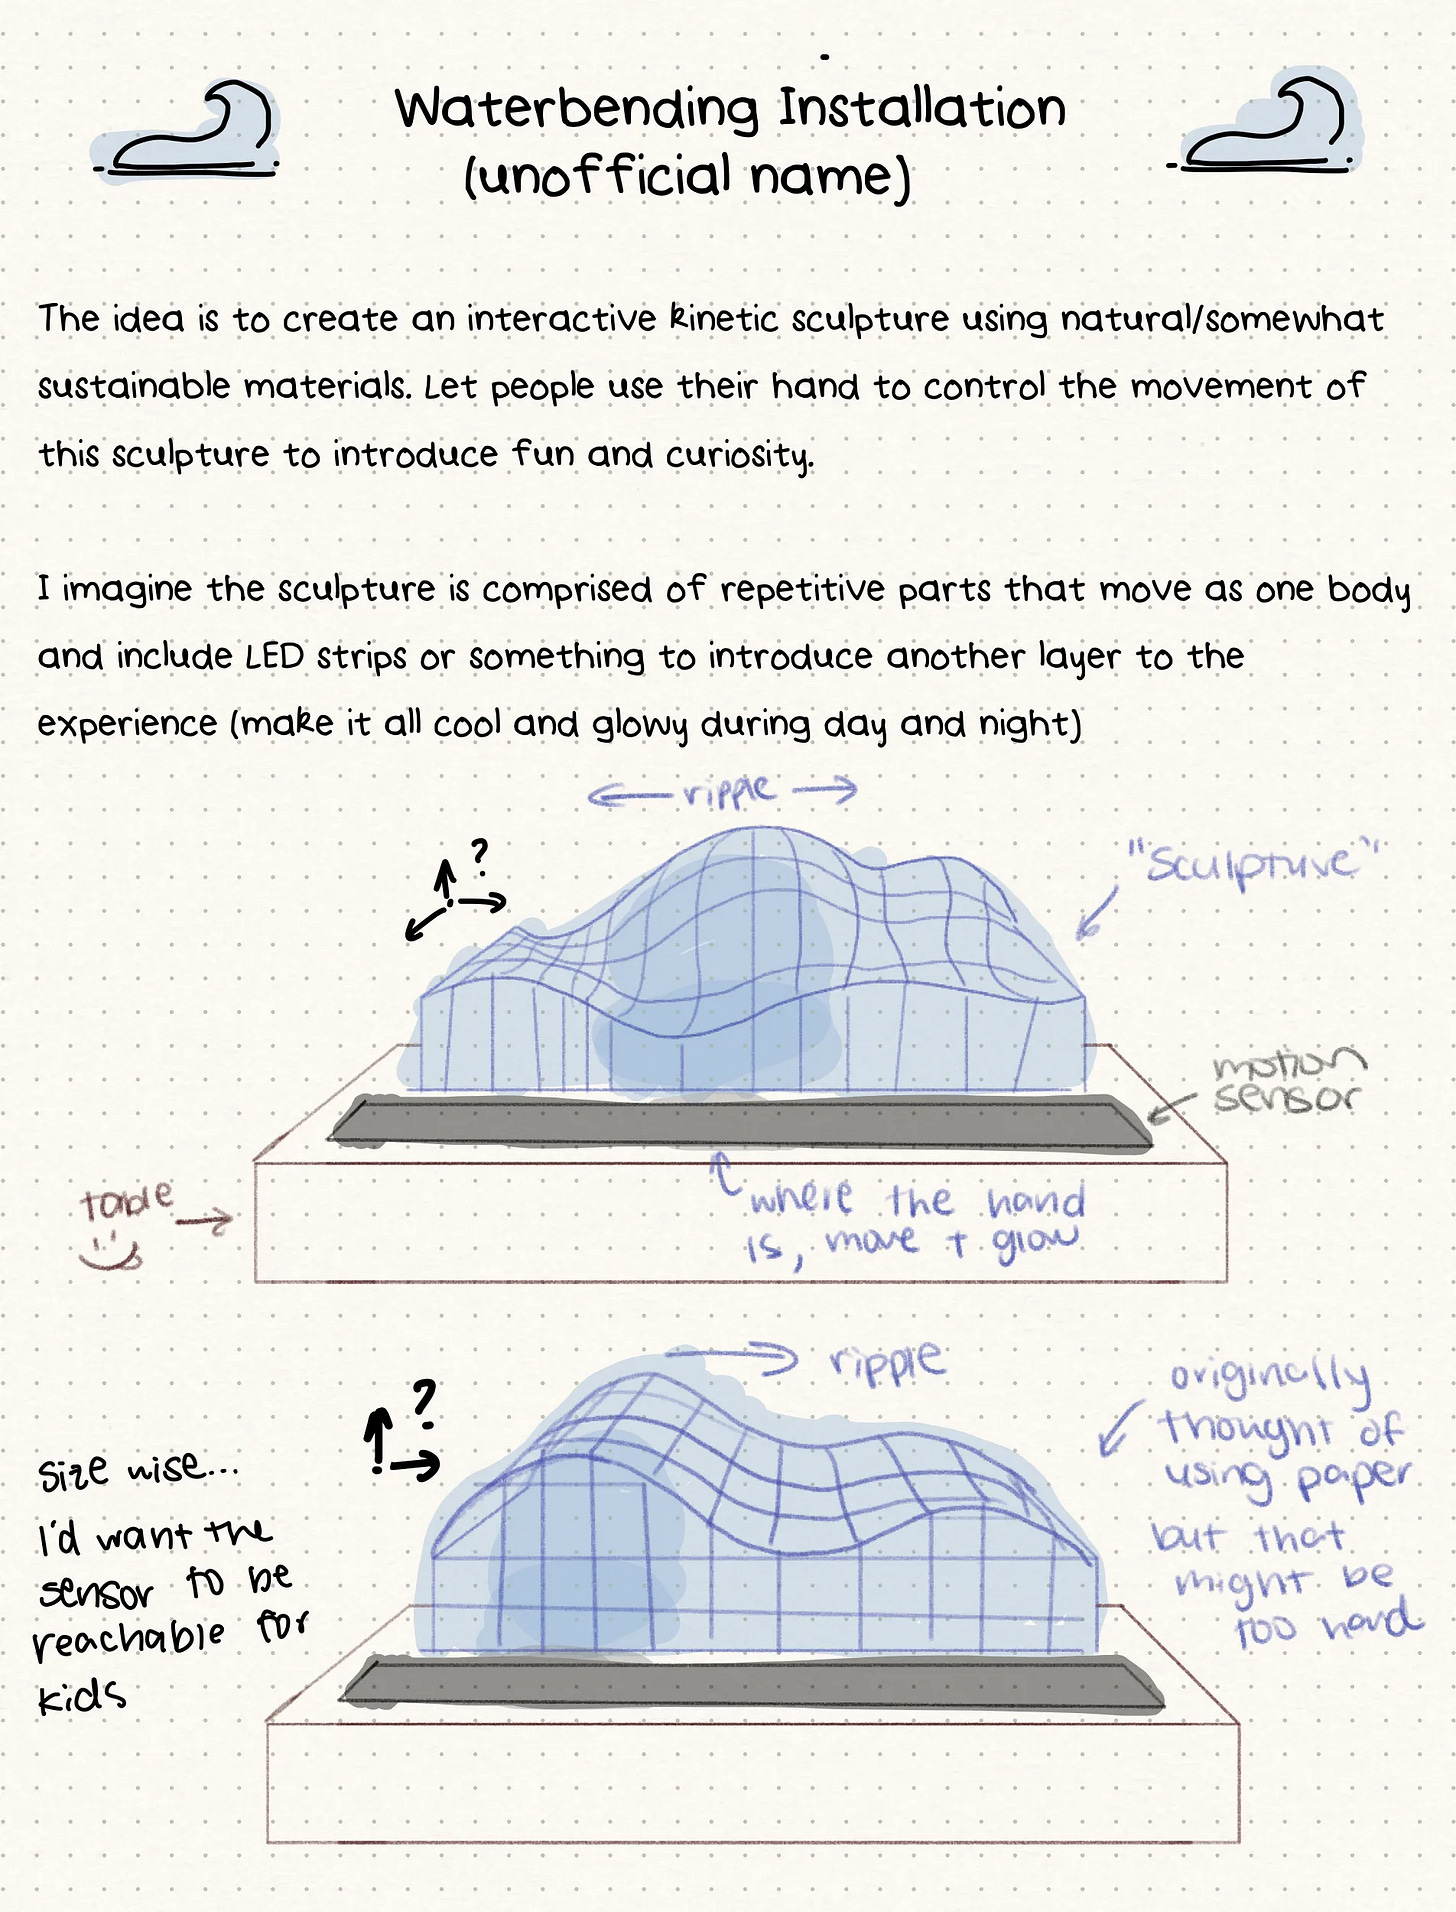 Waterbending Installation
(unofficial name)
The idea is to create an interactive kinetic sculpture using natural/somewhat
sustainable materials. Let people use their hand to control the movement of
this sculpture to introduce fun and curiosity.
I imagine the sculpture is comprised of repetitive parts that move as one body
and include LED strips or something to introduce another layer to the
experience (make it all cool and glowy during day and night)
ripple
?
"Sculpture"
motion
sensor
table
where the hand
is, move + glow
ripple
?
originally
thought of
using paper
but that
might be
too hard
size wise...
I'd want the
sensor to be
reachable for
kids